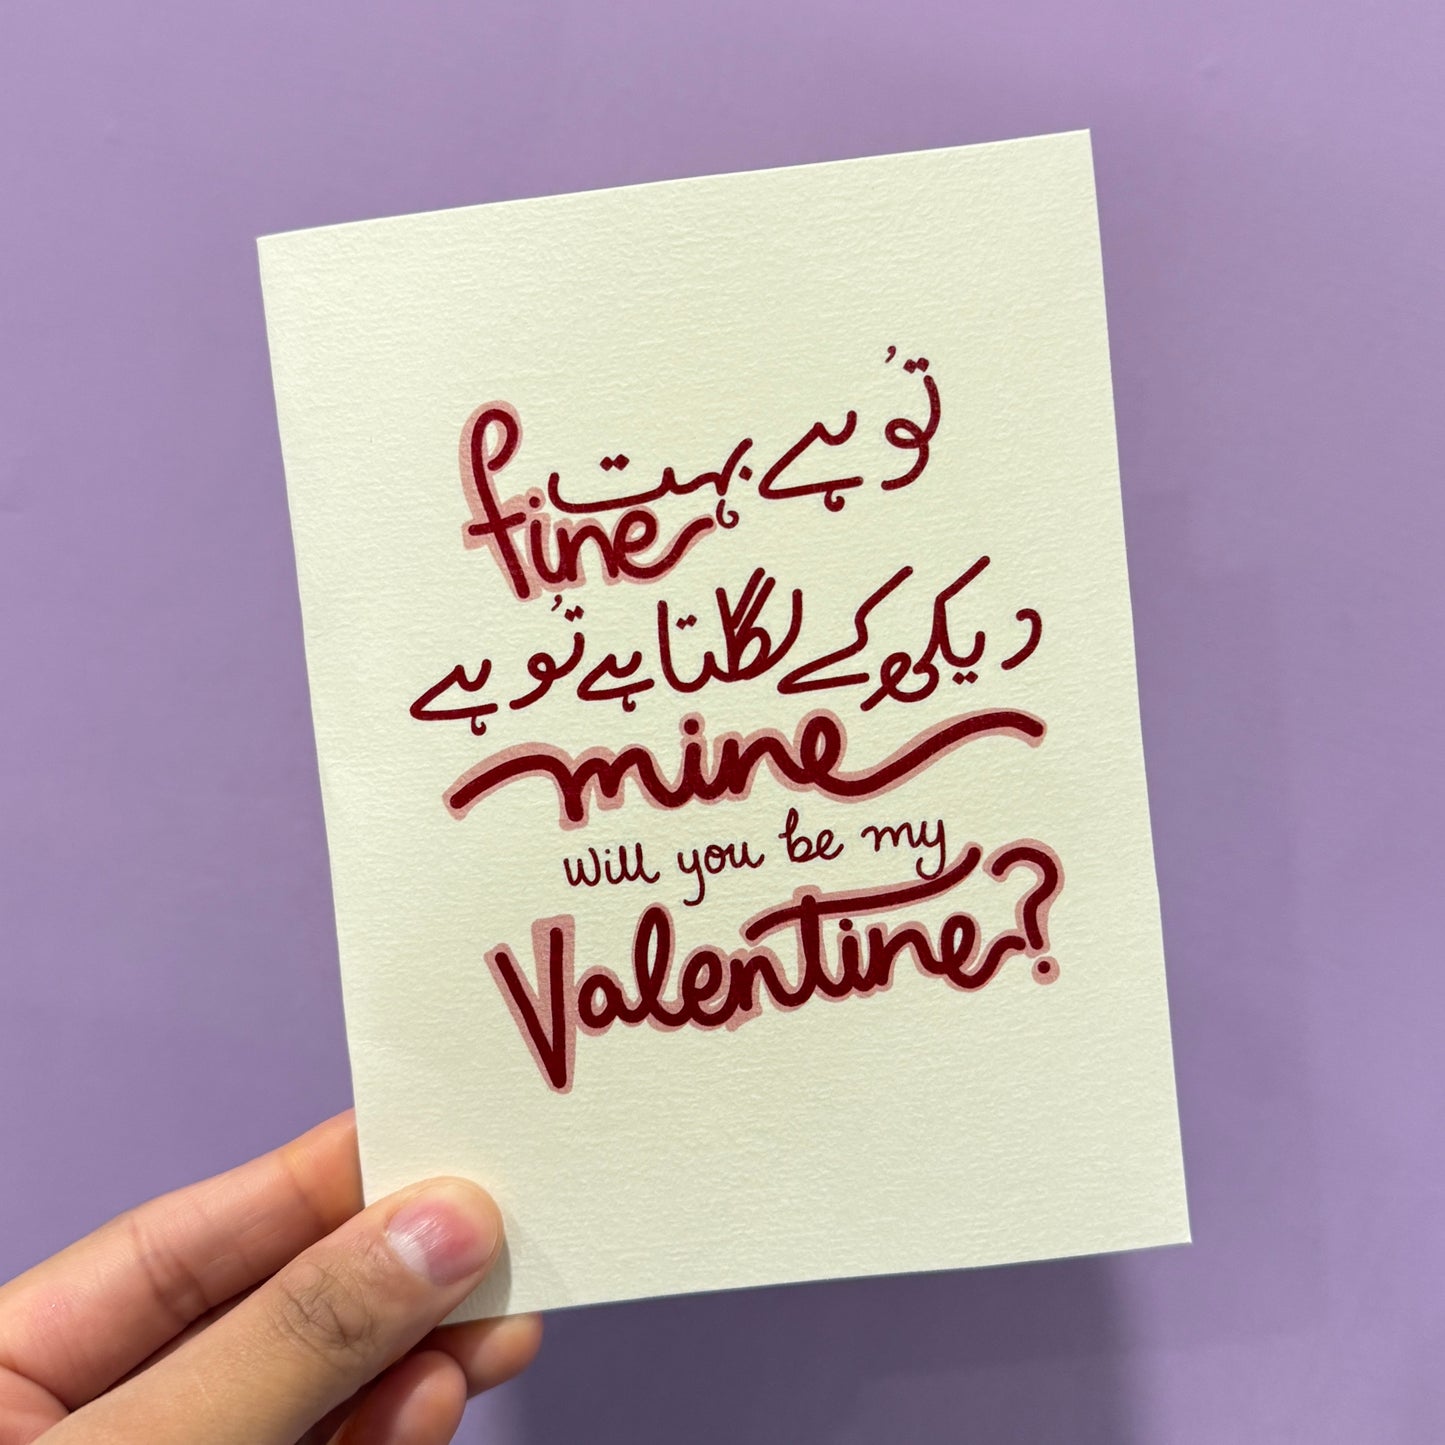 تُو ہے بہت fine
دیکھ کے لگتا ہے تُو ہے
mine
will you be my
Valentine?